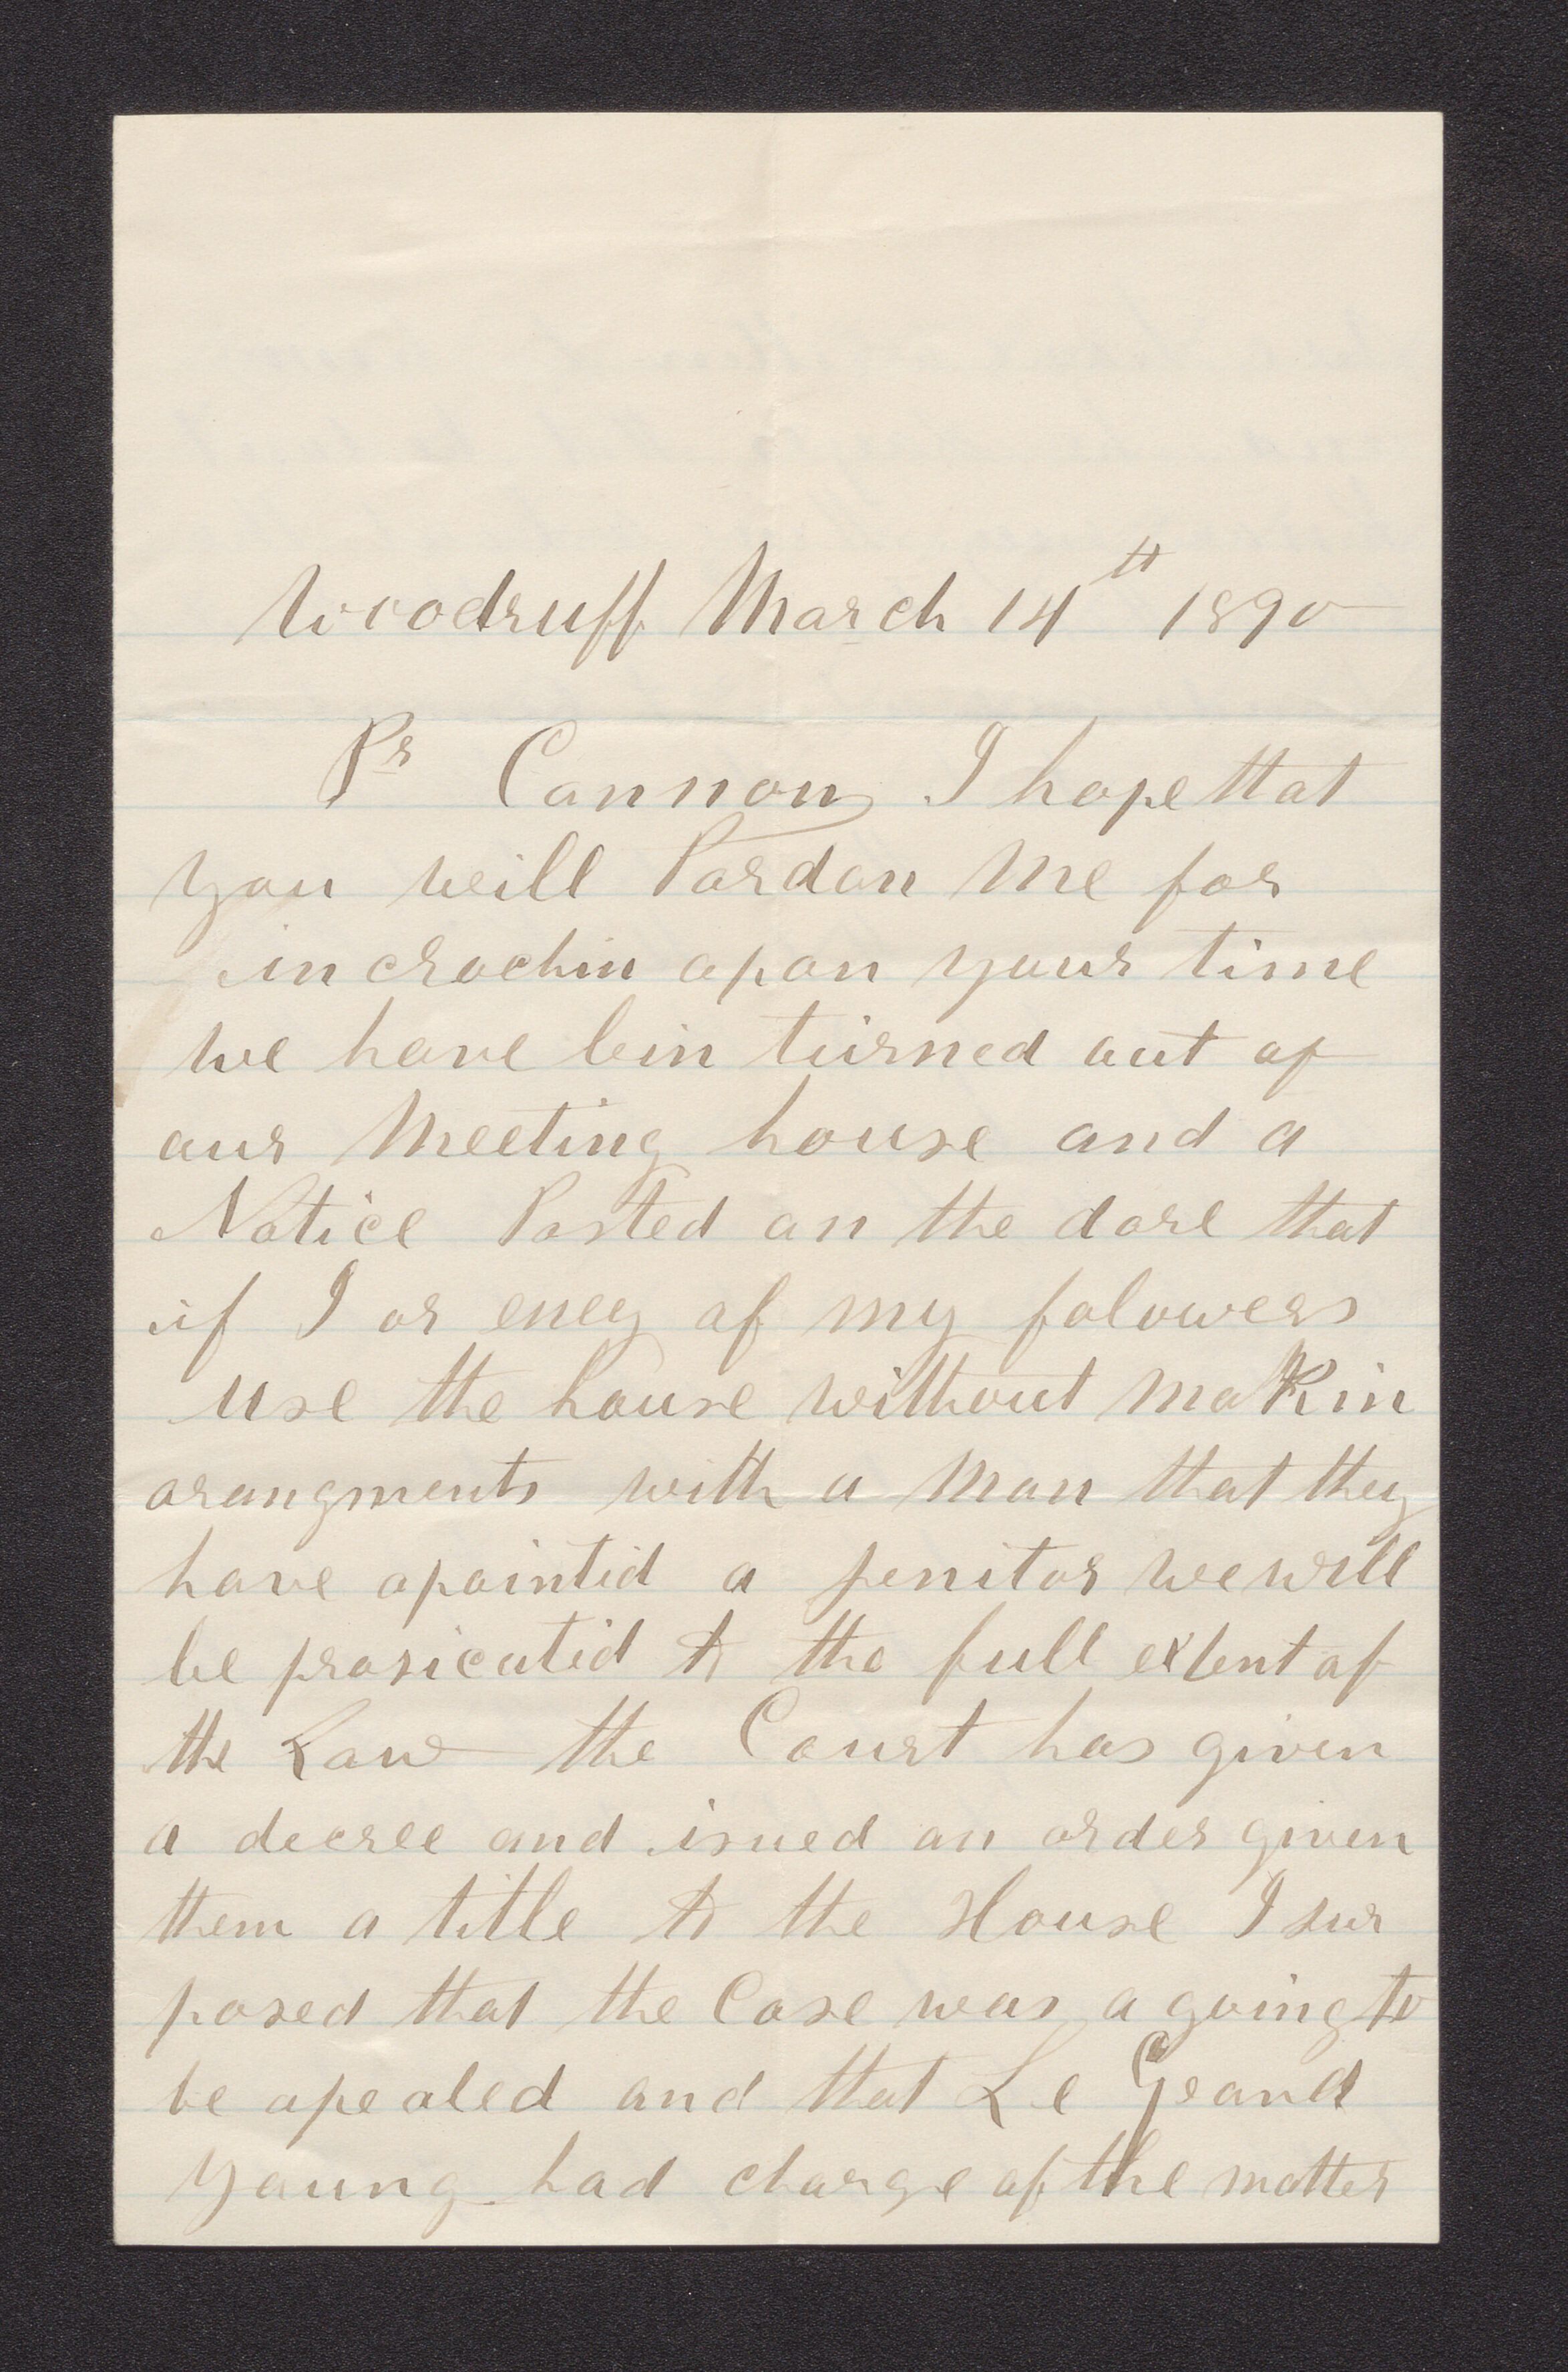 Woodruff March 14th 1890
Pr Cannon I hope that
you will Pardon Me for
in crochin apon your time
we have bin turned out of
our Meeting house and a
Notice Posted on the dore that
if I or eney of my folowers
use the house without makin
arangments with a Man that they
have apointid a jenitor we will
be prosicutid to the full extent of
the Law the Court has given
a decree and isued an order given
them a title to the House I sur
posed that the Case was a going to
be apealed and that Le Grand
Young had charge of the matter